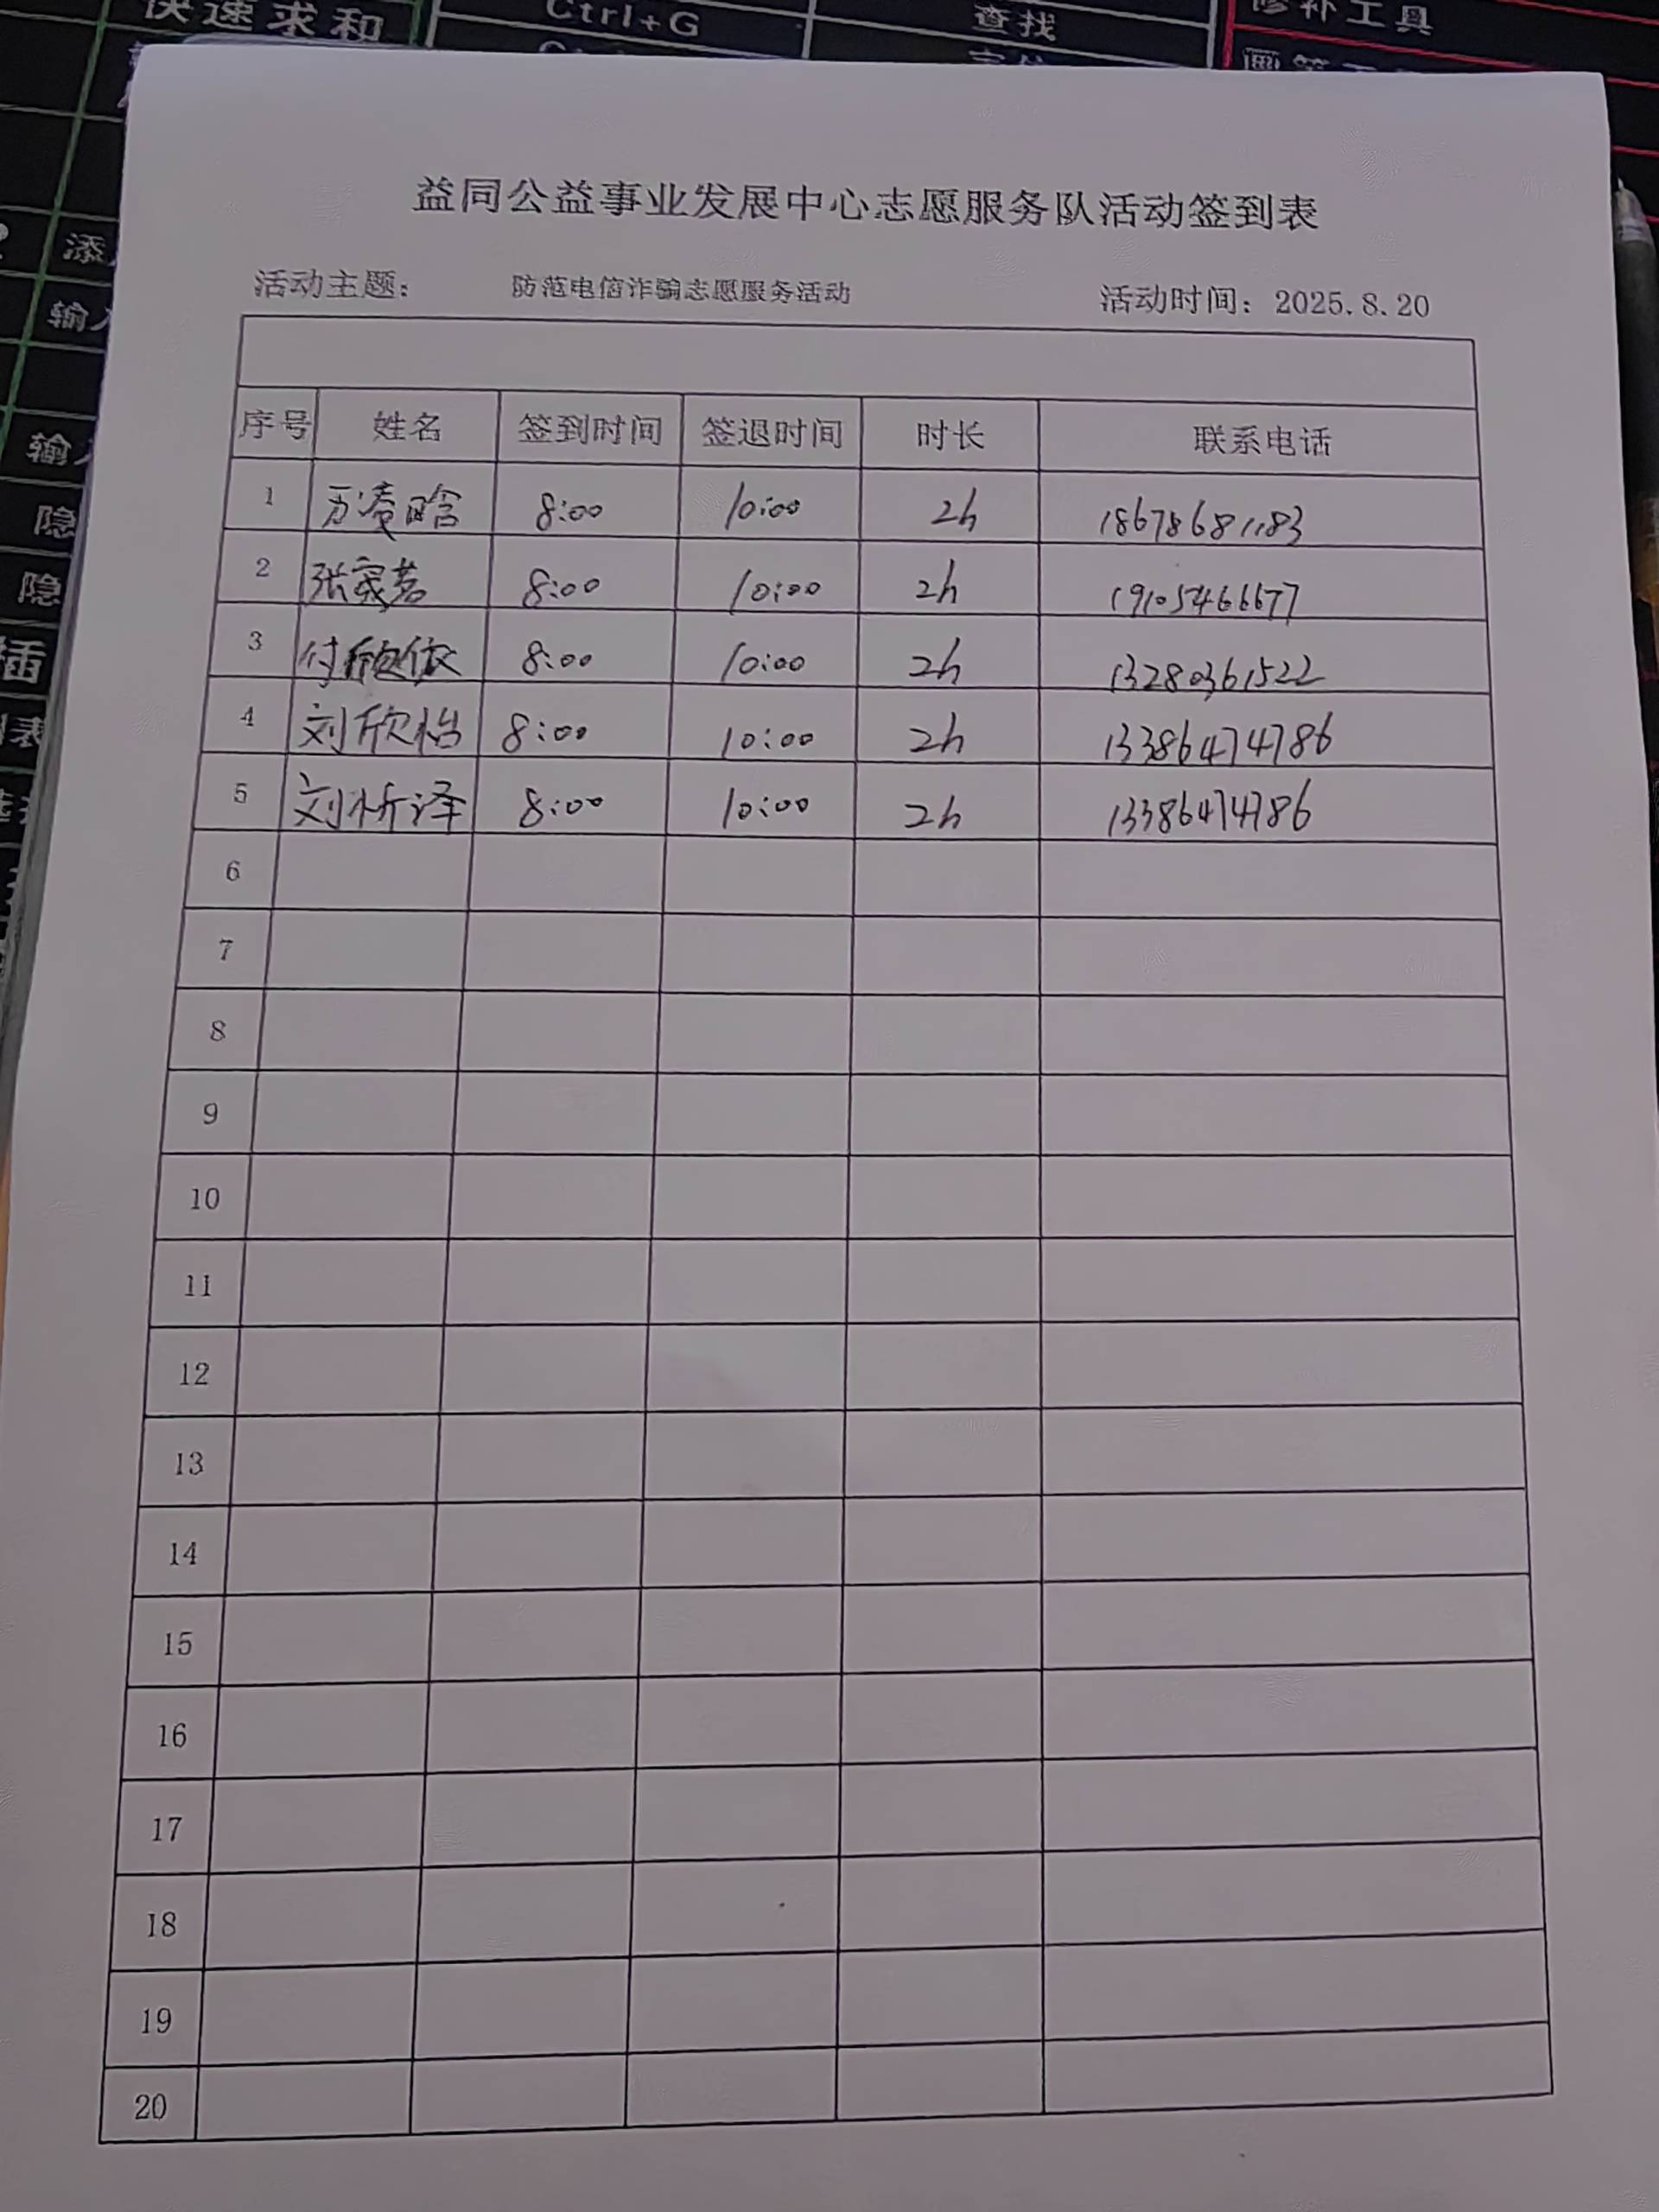 快速求和 Ctrl+G 查找 修补工具
益同公益事业发展中心志愿服务队活动签到表
活动主题： 防范电信诈骗志愿服务活动 活动时间：2025.8.20
序号 姓名 签到时间 签退时间 时长 联系电话
1 8:00 10:00 2h 18678681183
2 8:00 10:00 2h 19105466677
3 付欣依 8:00 10:00 2h 13280361522
4 刘欣怡 8:00 10:00 2h 13386474786
5 刘析泽 8:00 10:00 2h 13386474786
6
7
8
9
10
11
12
13
14
15
16
17
18
19
20